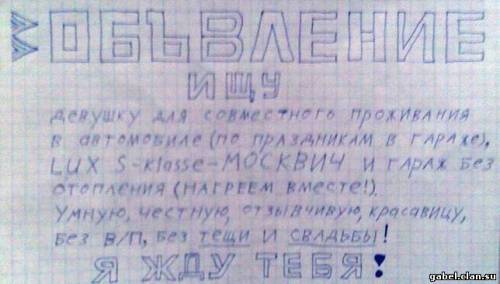 ОБЪВЛЕНИЕ
ИЩУ
девушку для совместного проживания
в автомобиле (по праздникам в гараже),
LUX S-klasse-МОСКВИЧ и гараж без
отопления (НАГРЕЕМ ВМЕСТЕ!).
Умную, честную, отзывчивую, красавицу,
без В/П, без тещи и СВАДЬБЫ!
Я ЖДУ ТЕБЯ!
gabel.clan.su